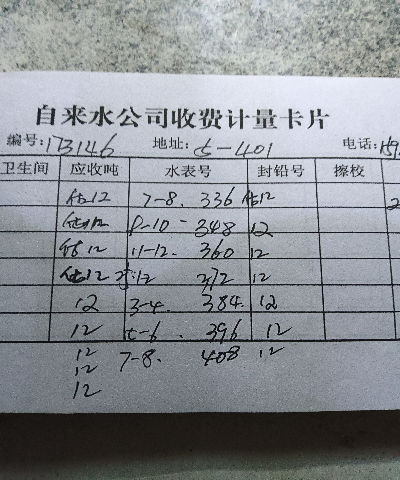 自来水公司收费计量卡片
编号:173146 地址: 5-401 电话:159
卫生间 应收吨 水表号 封铅号 擦校
12 7-8. 336 12
12 9-10 348 12
12 11-12. 360 12
12 372 12
12 3-4. 384. 12
12 5-6. 396 12
12 7-8. 408 12
12
12